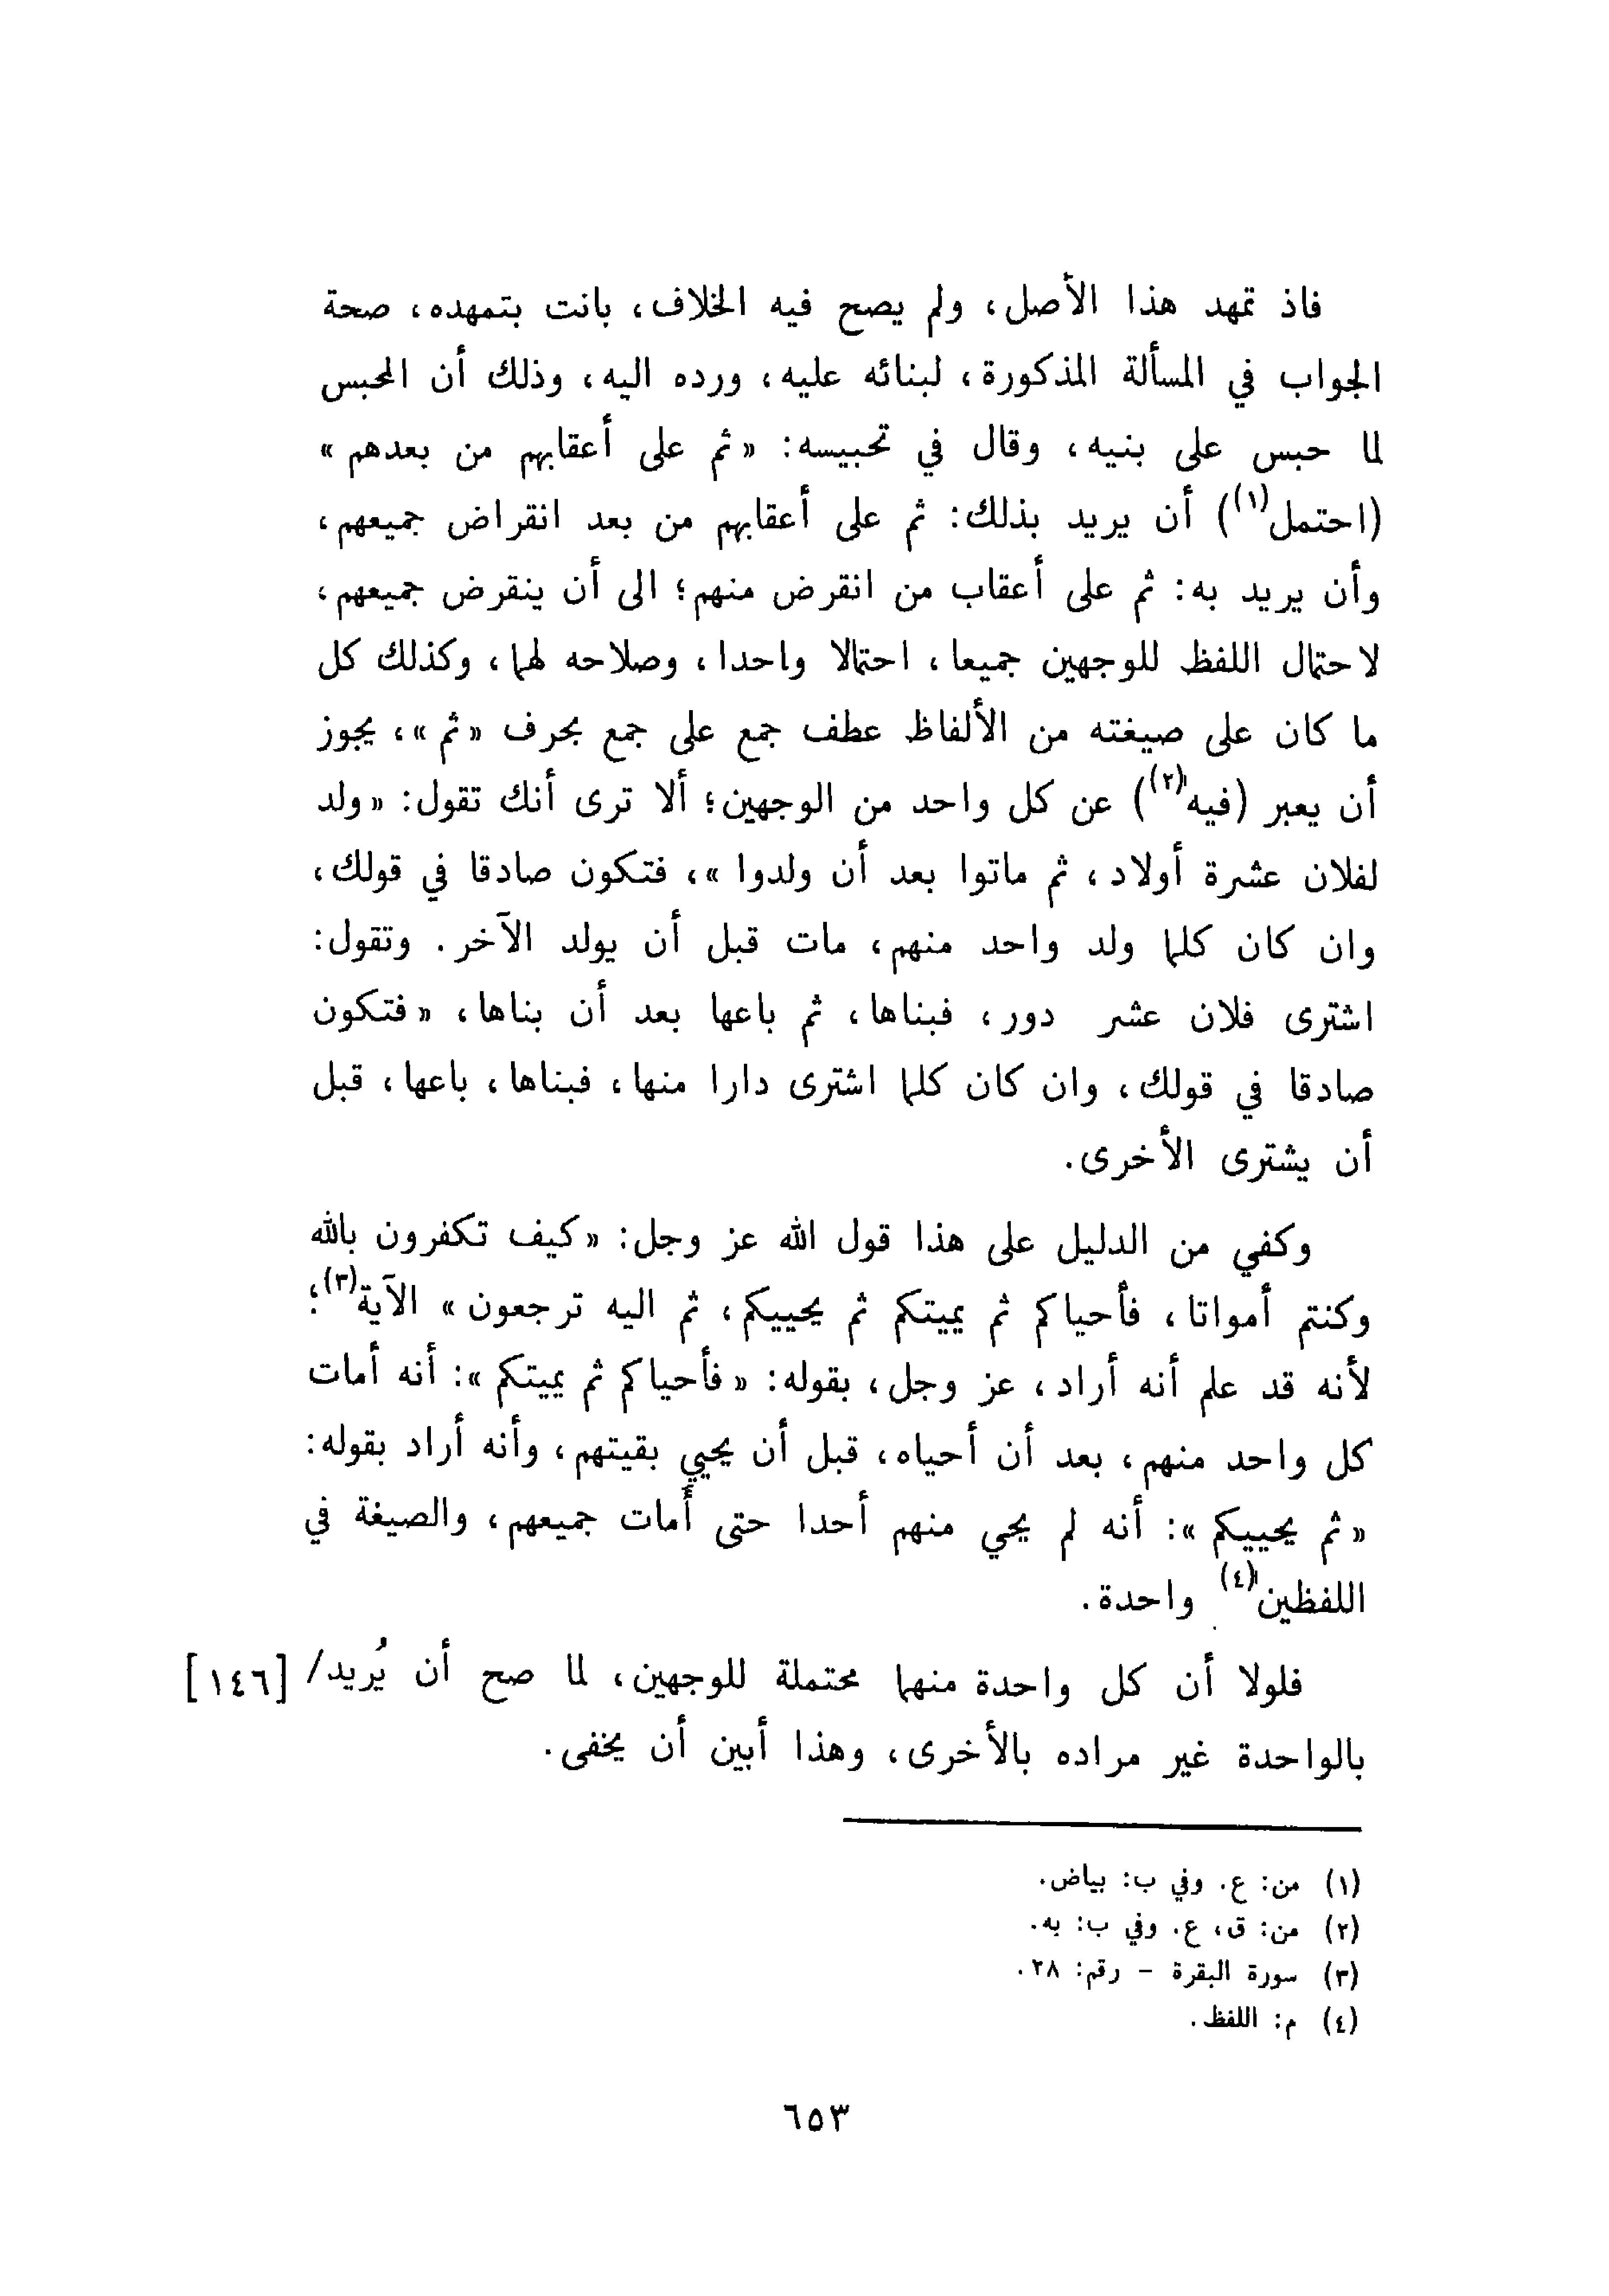 فاذ تمهد هذا الأصل، ولم يصح فيه الخلاف، بانت بتمهده، صحة
الجواب في المسألة المذكورة، لبنائه عليه، ورده اليه، وذلك أن المحبس
لما حبس على بنيه، وقال في تحبيسه: «ثم على أعقابهم من بعدهم»
(احتمل(١)) أن يريد بذلك: ثم على أعقابهم من بعد انقراض جميعهم،
وأن يريد به: ثم على أعقاب من انقرض منهم؛ الى أن ينقرض جميعهم،
لاحتمال اللفظ للوجهين جميعا، احتمالا واحدا، وصلاحه لهما، وكذلك كل
ما كان على صيغته من الألفاظ عطف جمع على جمع بحرف «ثم»، يجوز
أن يعبر (فيه(٢)) عن كل واحد من الوجهين؛ ألا ترى أنك تقول: «ولد
لفلان عشرة أولاد، ثم ماتوا بعد أن ولدوا»، فتكون صادقا في قولك،
وان كان كلما ولد واحد منهم، مات قبل أن يولد الآخر. وتقول:
اشترى فلان عشر دور، فبناها، ثم باعها بعد أن بناها، «فتكون
صادقا في قولك، وان كان كلما اشترى دارا منها، فبناها، باعها، قبل
أن يشترى الأخرى.
وكفي من الدليل على هذا قول الله عز وجل: «كيف تكفرون بالله
وكنتم أمواتا، فأحياكم ثم يميتكم ثم يحييكم، ثم اليه ترجعون» الآية(٣)؛
لأنه قد علم أنه أراد، عز وجل، بقوله: «فأحياكم ثم يميتكم»: أنه أمات
كل واحد منهم، بعد أن أحياه، قبل أن يحيي بقيتهم، وأنه أراد بقوله:
«ثم يحييكم»: أنه لم يحي منهم أحدا حتى أمات جميعهم، والصيغة في
اللفظين(٤) واحدة.
فلولا أن كل واحدة منهما محتملة للوجهين، لما صح أن يُريد/ [١٤٦]
بالواحدة غير مراده بالأخرى، وهذا أبين أن يخفى.
(١) من: ع. وفي ب: بياض.
(٢) من: ق، ع. وفي ب: به.
(٣) سورة البقرة - رقم: ٢٨.
(٤) م: اللفظ.
٦٥٣